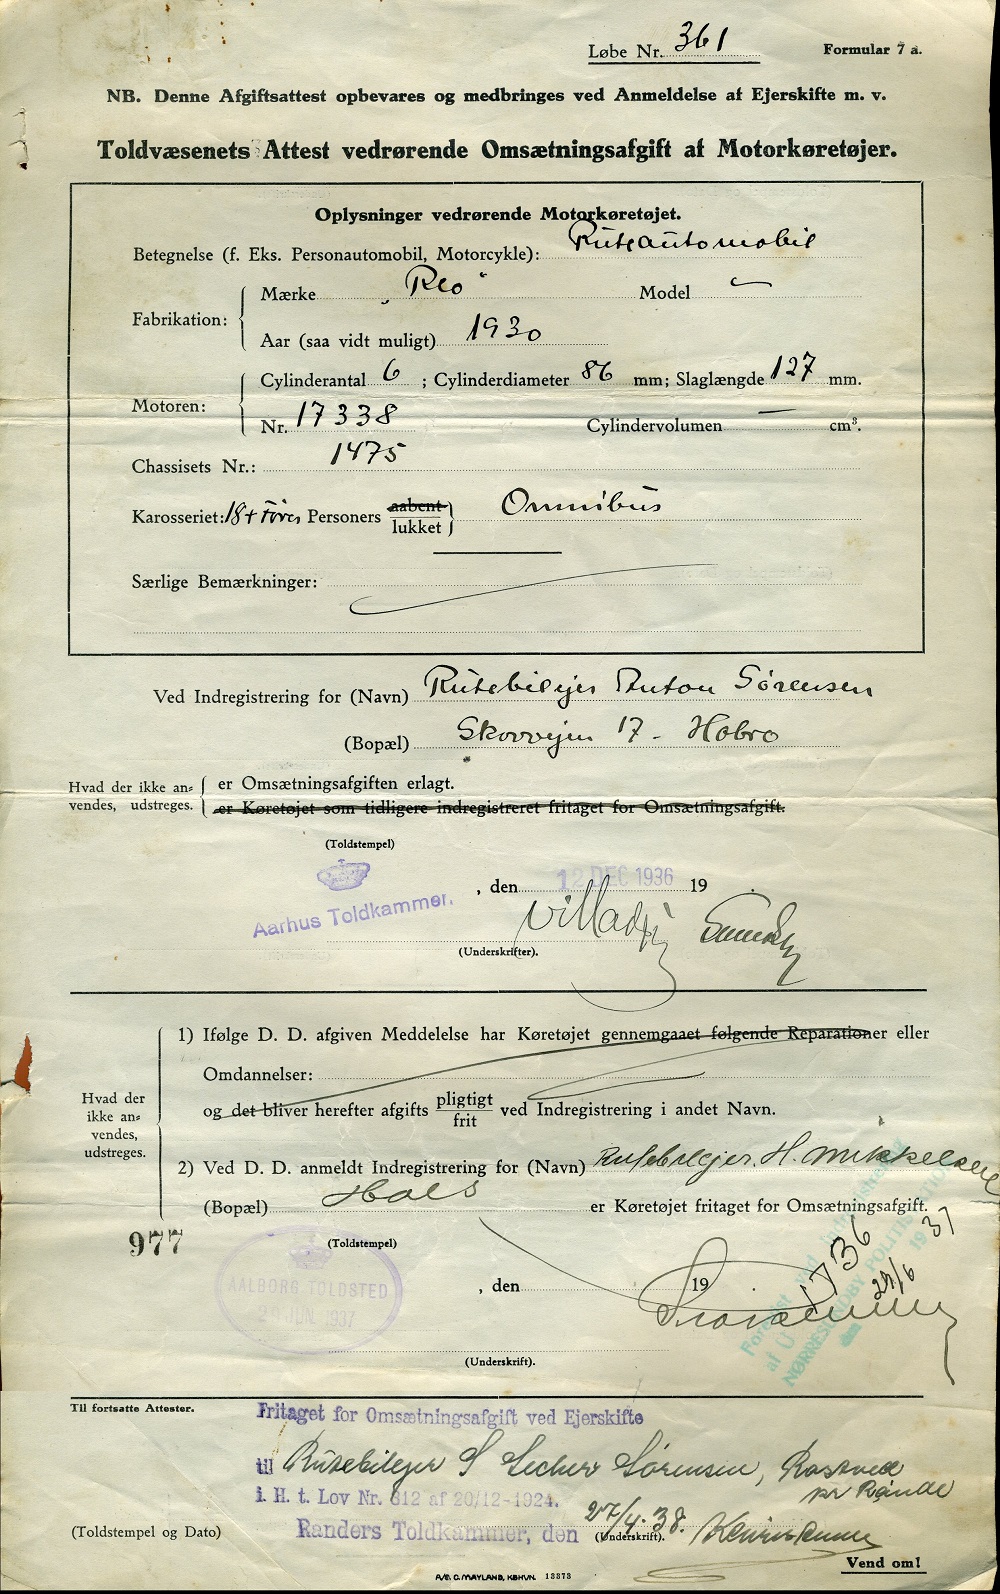 Løbe Nr. 361 Formular 7 a.
NB. Denne Afgiftsattest opbevares og medbringes ved Anmeldelse af Ejerskifte m. v.
Toldvæsenets Attest vedrørende Omsætningsafgift af Motorkøretøjer.
Oplysninger vedrørende Motorkøretøjet.
Betegnelse (f. Eks. Personautomobil, Motorcykle): Ruteautomobil
Fabrikation:
Mærke „Reo“ Model —
Aar (saa vidt muligt) 1930
Motoren:
Cylinderantal 6 ; Cylinderdiameter 86 mm; Slaglængde 127 mm.
Nr. 17338 Cylindervolumen — cm³.
Chassisets Nr.: 1475
Karosseriet: 18 + Fører Personers aabent lukket Omnibus
Særlige Bemærkninger:
Ved Indregistrering for (Navn) Rutebilejer Anton Sørensen
(Bopæl) Skovvejen 17 - Hobro
Hvad der ikke an=
vendes, udstreges.
er Omsætningsafgiften erlagt.
er Køretøjet som tidligere indregistreret fritaget for Omsætningsafgift.
(Toldstempel)
Aarhus Toldkammer.
, den 12 DEC 1936 19
(Underskrifter).
Hvad der
ikke an=
vendes,
udstreges.
1) Ifølge D. D. afgiven Meddelelse har Køretøjet gennemgaaet følgende Reparationer eller
Omdannelser:
og det bliver herefter afgifts pligtigt frit ved Indregistrering i andet Navn.
2) Ved D. D. anmeldt Indregistrering for (Navn) Rutebilejer H. Mikkelsen
(Bopæl) Hals er Køretøjet fritaget for Omsætningsafgift.
977
(Toldstempel)
AALBORG TOLDSTED
JUN. 1937
, den 19
1736
29/6 1937
NØRRESUNDBY POLITI
(Underskrift).
Til fortsatte Attester.
Fritaget for Omsætningsafgift ved Ejerskifte
til Rutebilejer S Secher Sørensen, Rostved
pr Rønde
i. H. t. Lov Nr. 312 af 20/12-1924.
Randers Toldkammer, den 27/4. 38.
(Toldstempel og Dato) (Underskrift).
Vend om!
A/S. C. MAYLAND, KBHVN. 13373